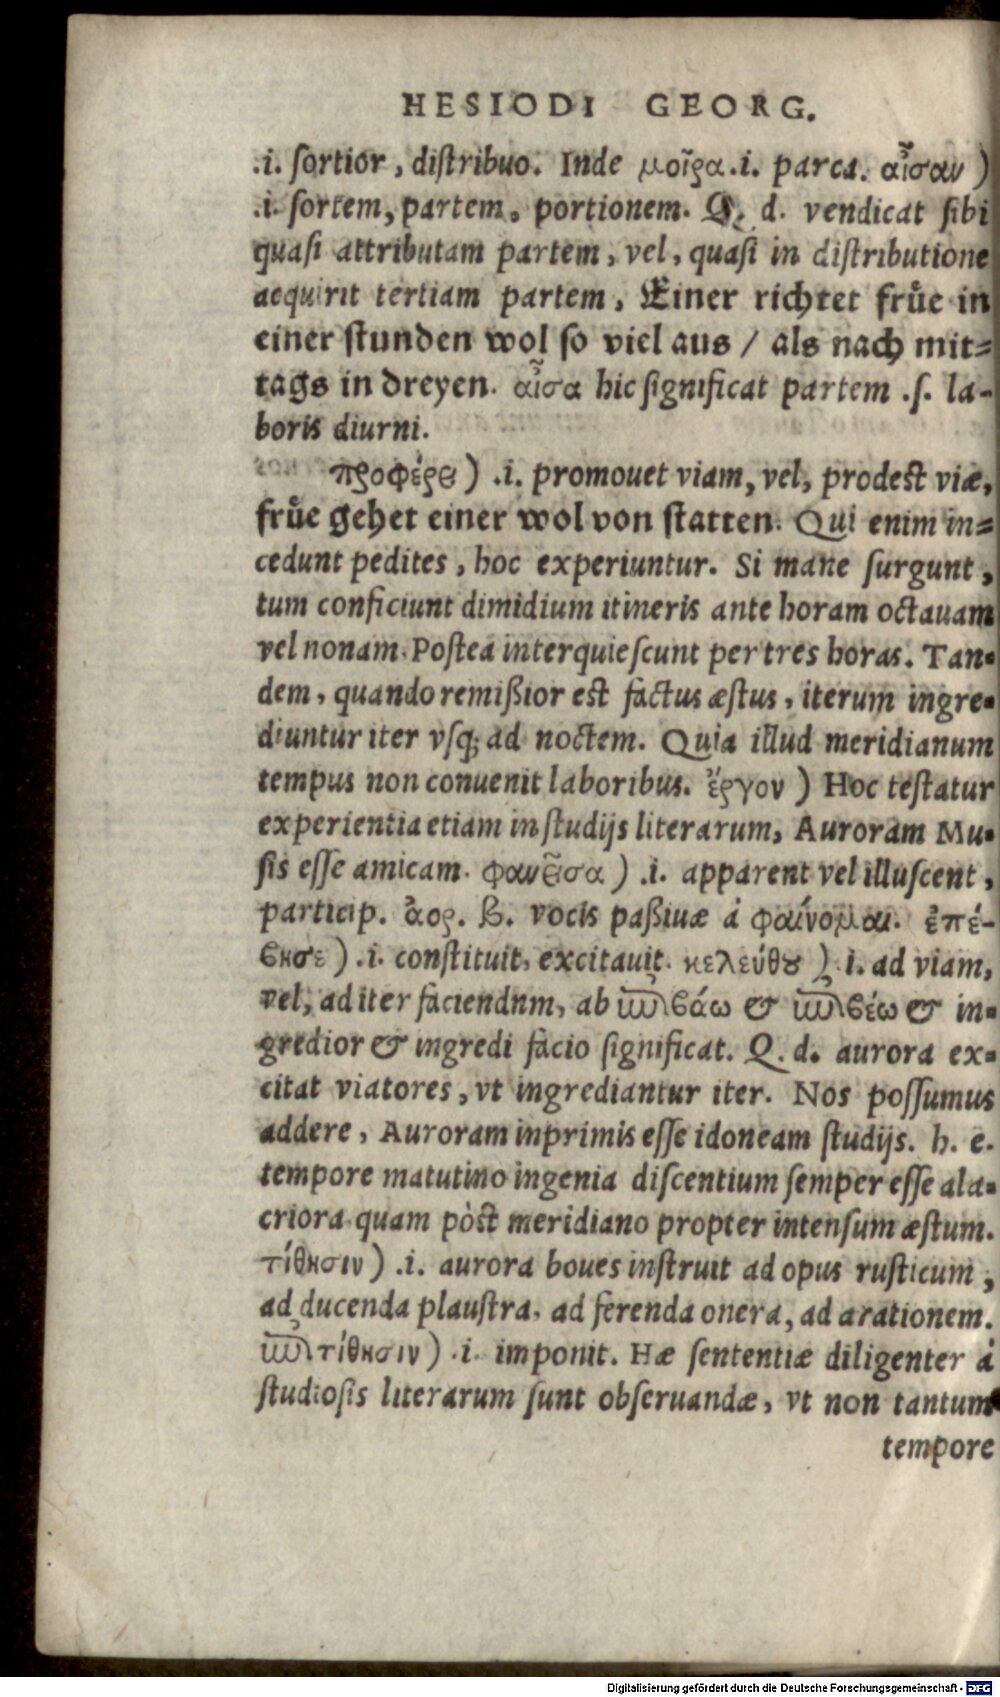 HESIODI GEORG.
.i. ſortior, diſtribuo. Inde μοῖρα .i. parca. αἶσαν )
.i. ſortem, partem, portionem. Q. d. vendicat ſibi
quaſi attributam partem, vel, quaſi in diſtributione
acquirit tertiam partem, Einer richtet früe in
einer ſtunden wol ſo viel aus / als nach mit⸗
tags in dreyen. αἶσα hic ſignificat partem .ſ. la-
boris diurni.
προφέρει ) .i. promouet viam, vel, prodeſt viæ,
früe gehet einer wol von ſtatten. Qui enim in⸗
cedunt pedites, hoc experiuntur. Si mane ſurgunt,
tum conficiunt dimidium itineris ante horam octauam
vel nonam. Poſtea interquieſcunt per tres horas. Tan⸗
dem, quando remißior eſt factus æſtus, iterum ingre⸗
diuntur iter vſq; ad noctem. Quia illud meridianum
tempus non conuenit laboribus. ἔργον ) Hoc teſtatur
experientia etiam in ſtudijs literarum, Auroram Mu⸗
ſis eſſe amicam. φανεῖσα ) .i. apparent vel illuſcent,
particip. ἀορ. β. vocis paßiuæ à φαίνομαι. ἐπέ-
βησε ) .i. conſtituit, excitauit. κελεύθου ) .i. ad viam,
vel, ad iter faciendnm, ab ἐπιβάω & ἐπιβέω & in⸗
gredior & ingredi facio ſignificat. Q. d. aurora ex⸗
citat viatores, vt ingrediantur iter. Nos poſſumus
addere, Auroram inprimis eſſe idoneam ſtudijs. h. e.
tempore matutino ingenia diſcentium ſemper eſſe ala⸗
criora quam pòſt meridiano propter intenſum æſtum.
τίθησιν ) .i. aurora boues inſtruit ad opus ruſticum,
ad ducenda plauſtra, ad ferenda onera, ad arationem.
ἐπιτίθησιν ) .i. imponit. Hæ ſententiæ diligenter à
ſtudioſis literarum ſunt obſeruandæ, vt non tantum
tempore
Digitalisierung gefördert durch die Deutsche Forschungsgemeinschaft - DFG